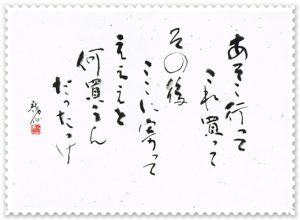 あそこ行って
これ買って
その後
ここに寄って
えええと
何買うん
だったっけ